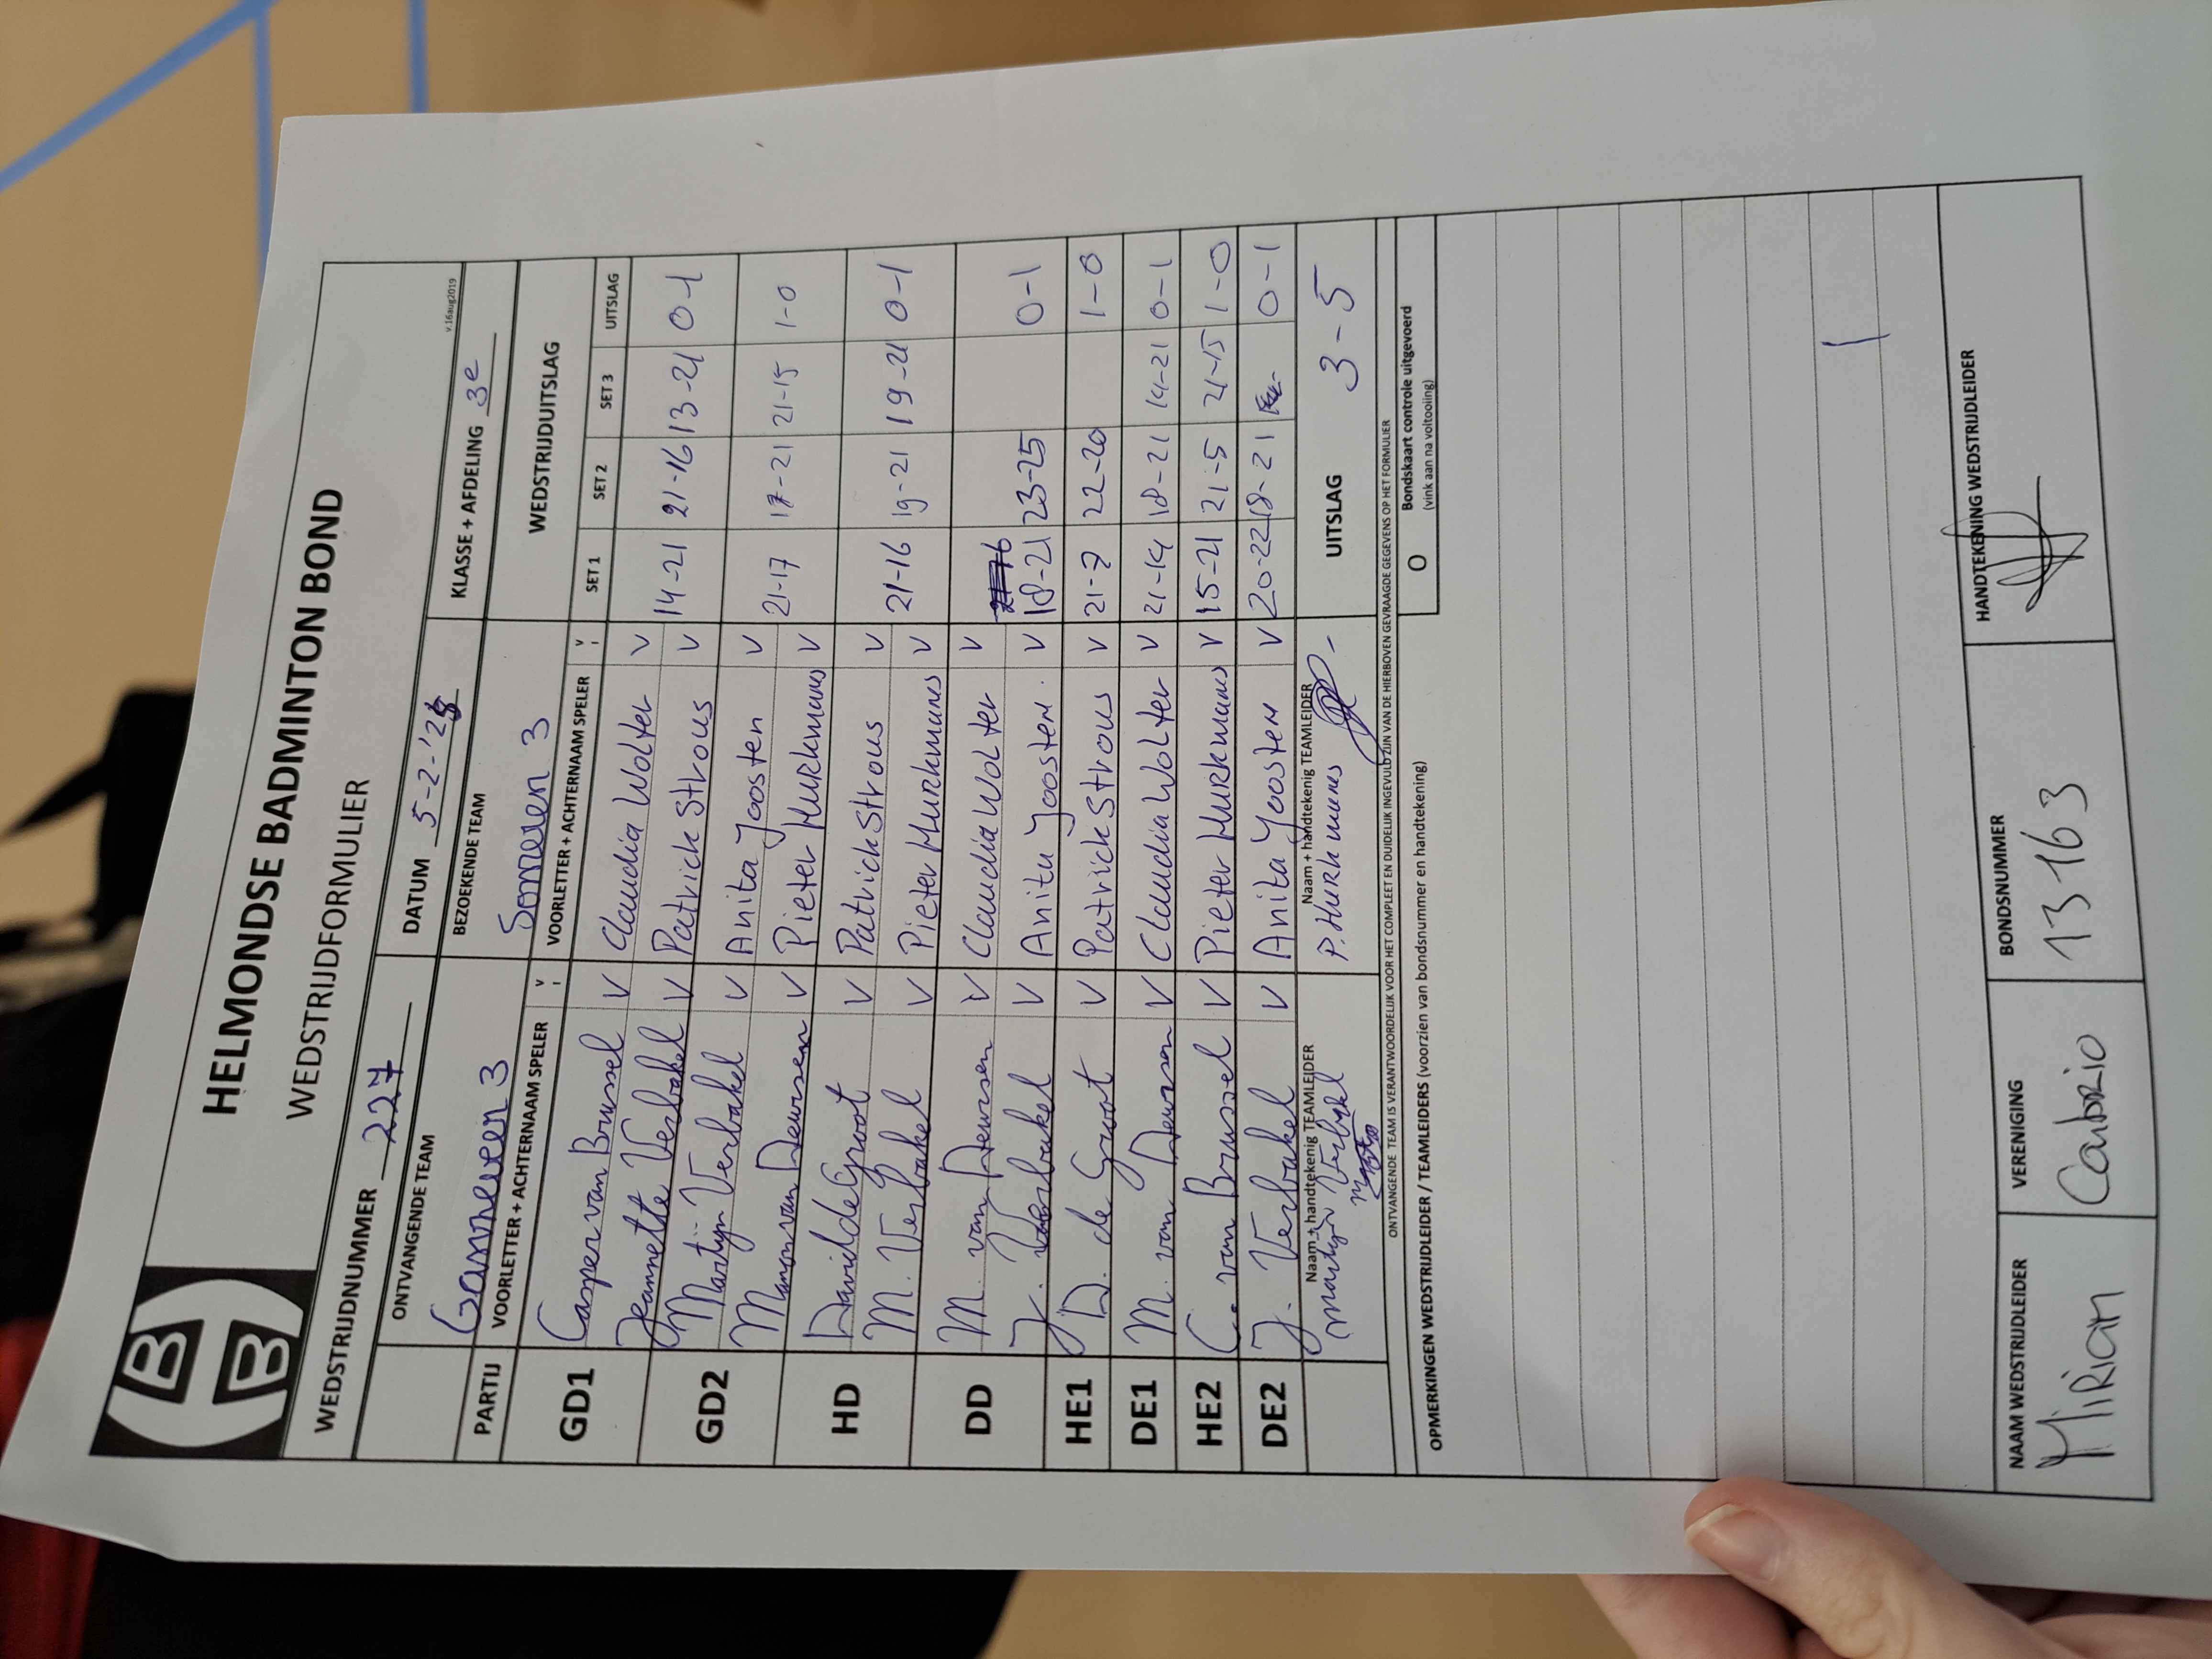 HELMONDSE BADMINTON BOND
WEDSTRIJDFORMULIER
v.16aug2019
WEDSTRIJDNUMMER 227 DATUM 5-2-'25 KLASSE + AFDELING 3e
ONTVANGENDE TEAM BEZOEKENDE TEAM
Ganneven 3 Someren 3
PARTIJ VOORLETTER + ACHTERNAAM SPELER V VOORLETTER + ACHTERNAAM SPELER V WEDSTRIJDUITSLAG
SET 1 SET 2 SET 3 UITSLAG
GD1 Casper van Brussel V Claudia Wolter V
Jeannette Verbakel V Patrick Strous V 14-21 21-16 13-21 0-1
GD2 Martijn Verbakel V Anita Joosten V
Manon van Deursen V Pieter Hurkmans V 21-17 17-21 21-15 1-0
HD David de Groot V Patrick Strous V
M. Verbakel V Pieter Hurkmans V 21-16 19-21 19-21 0-1
DD M. van Deursen V Claudia Wolter V
J. Verbakel V Anita Joosten. V 18-21 23-25 0-1
HE1 D. de Groot V Patrick Strous V 21-7 22-20 1-0
DE1 M. van Deursen V Claudia Wolter V 21-14 18-21 14-21 0-1
HE2 C. van Brussel V Pieter Hurkmans V 15-21 21-5 21-15 1-0
DE2 J. Verbakel V Anita Joosten V 20-22 18-21 0-1
Naam + handtekenig TEAMLEIDER Naam + handtekenig TEAMLEIDER UITSLAG 3-5
Martijn Verbakel P. Hurkmans
ONTVANGENDE TEAM IS VERANTWOORDELIJK VOOR HET COMPLEET EN DUIDELIJK INGEVULD ZIJN VAN DE HIERBOVEN GEVRAAGDE GEGEVENS OP HET FORMULIER
OPMERKINGEN WEDSTRIJDLEIDER / TEAMLEIDERS (voorzien van bondsnummer en handtekening)
O Bondskaart controle uitgevoerd
(vink aan na voltooiing)
NAAM WEDSTRIJDLEIDER VERENIGING BONDSNUMMER HANDTEKENING WEDSTRIJDLEIDER
Miriam Cabrio 13163